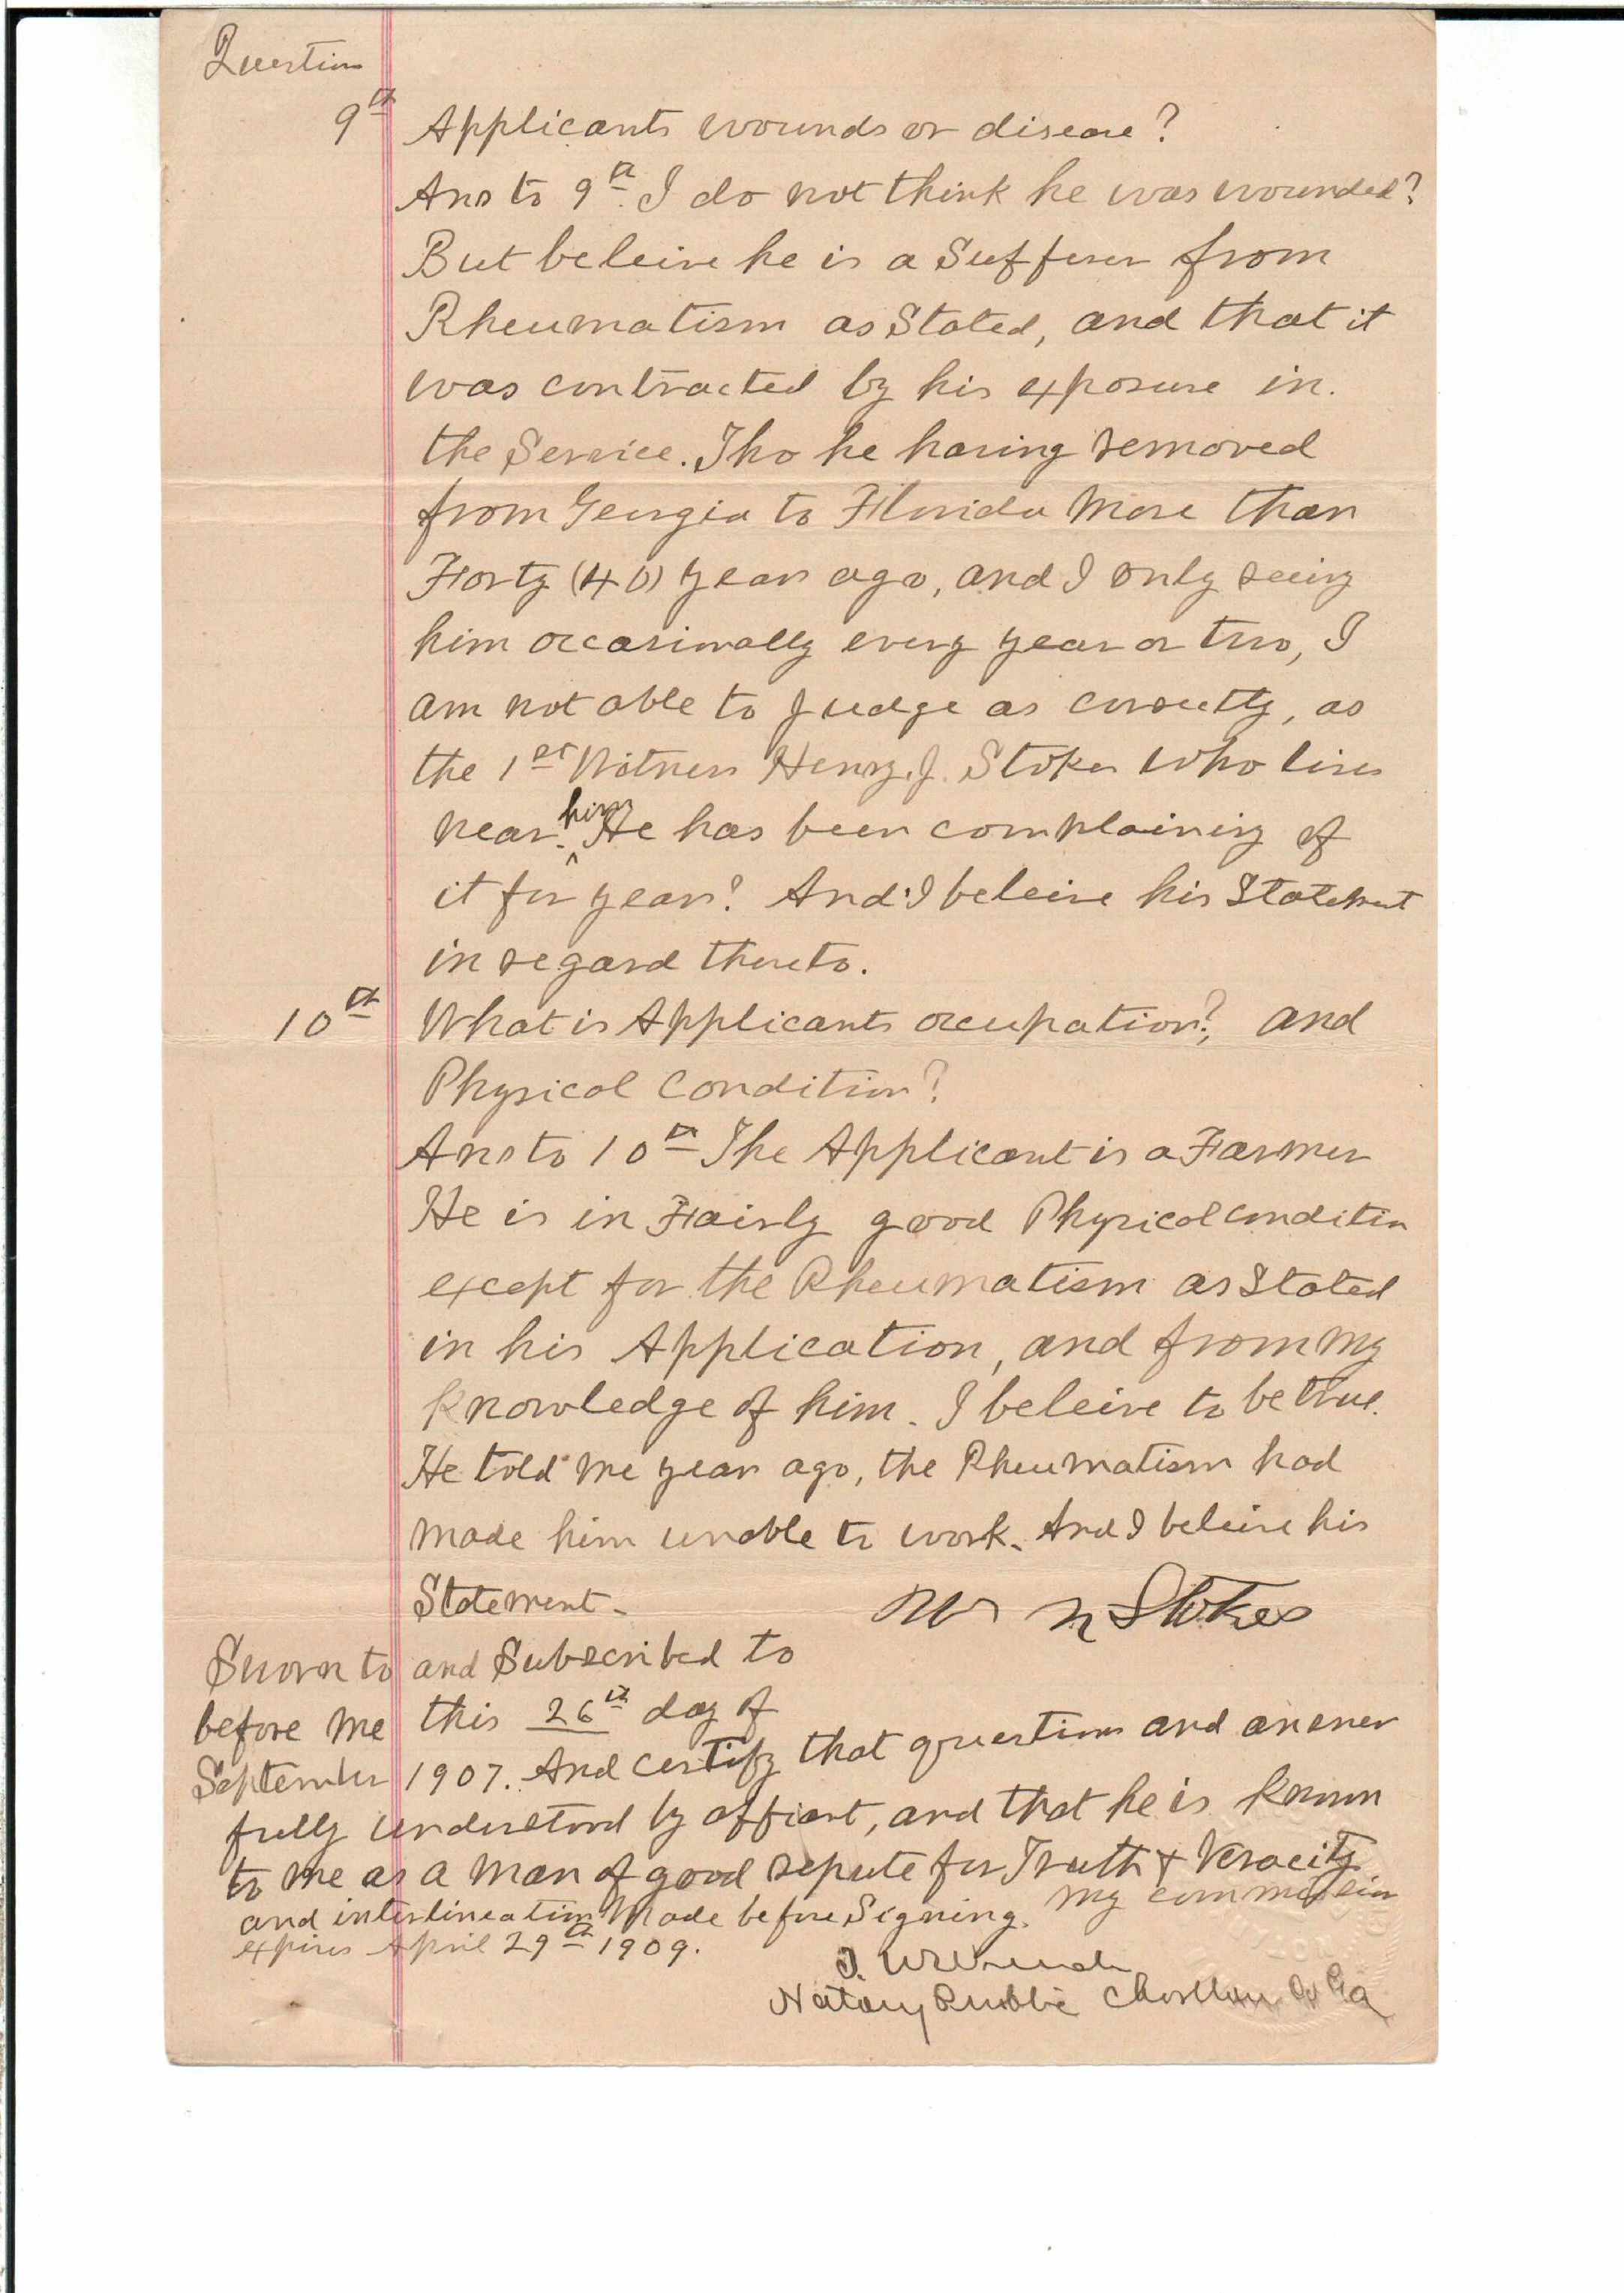 Question
9th Applicants wounds or disease?
Ans to 9th. I do not think he was wounded?
But beleive he is a Sufferer from
Rheumatism as Stated, and that it
was contracted by his exposure in.
the Service. Tho he having removed
from Georgia to Florida More than
Forty (40) years ago, and I only seeing
him occasionally every year or two, I
am not able to Judge as correctly, as
the 1st Witness Henry. J. Stokes who lives
near. him He has been complaining of
it for years? And I beleive his Statement
in regard thereto.
10th What is Applicants occupation?, and
Physical Condition?
Ans to 10th The Applicant is a Farmer
He is in Fairly good Physical condition
except for the Rheumatism as Stated
in his Application, and from My
Knowledge of him. I beleive to be true.
He told me years ago, the Rheumatism had
made him unable to work. And I beleive his
Statement. Wm N Stokes
Sworn to and Subscribed to
before me this 26th day of
September 1907. And certify that questions and answer
fully understood by affiant, and that he is Known
to me as a Man of good repute for Truth & Veracity
and interlineations Made before Signing. My commission
expires April 29th 1909.
Notary Public Charlton Co Ga